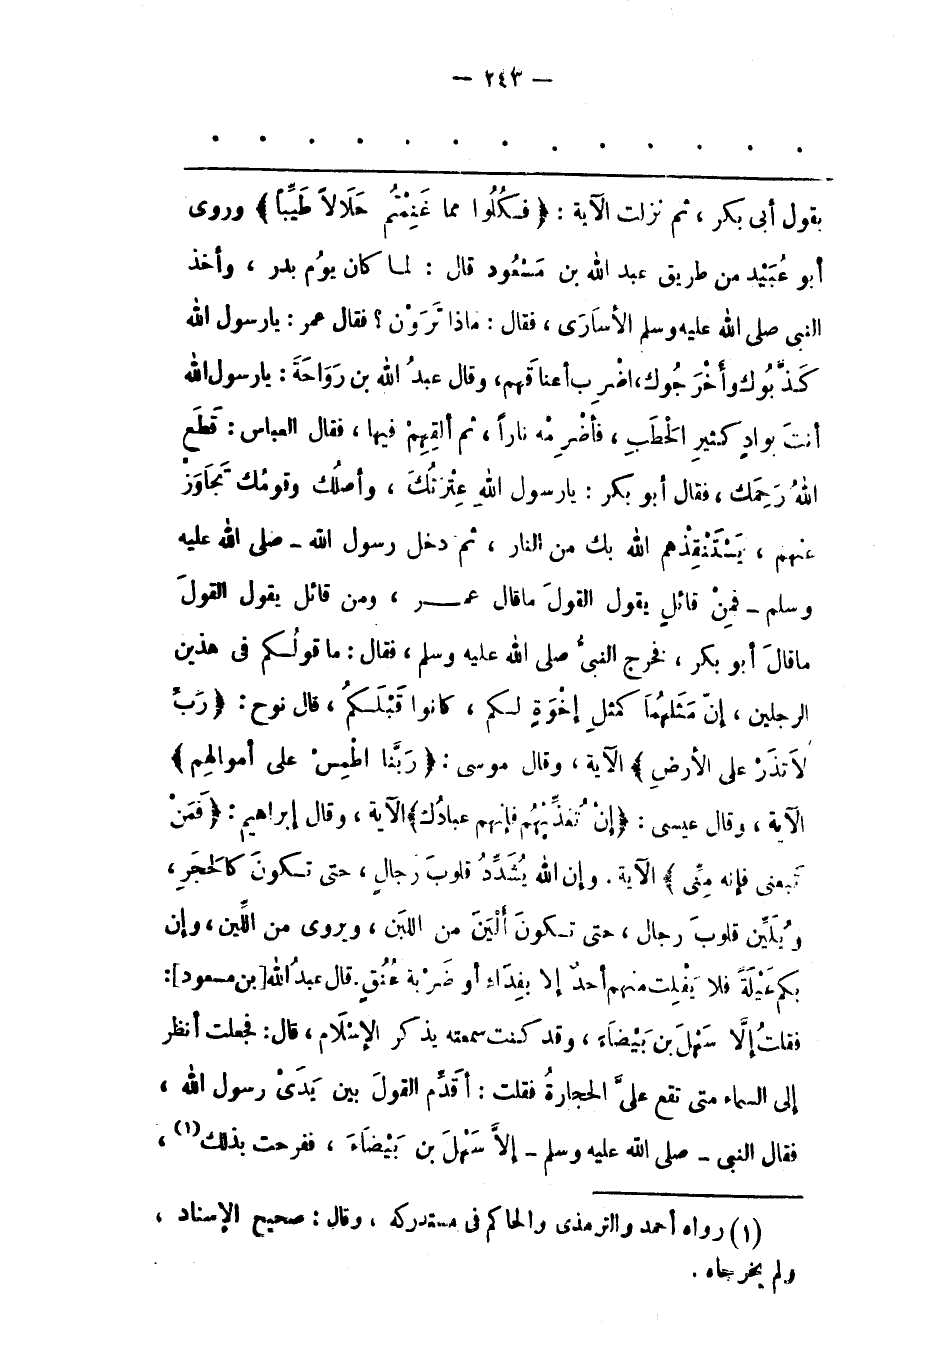 — ٢٤٣ —
. . . . . . . . . . . . .
بقول أبى بكر ، ثم نزلت الآية : ﴿ فـكُلُوا مما غَنِمْتُم حَلَالاً طَيِّباً ﴾ وروى
أبو عُبَيْد من طريق عبد الله بن مَسْعُود قال : لمـا كان يومُ بدر ، وأخذ
النبى صلى الله عليه وسلم الأسارَى ، فقال : ماذا تَرَوْن ؟ فقال عمر : يارسول الله
كَذَّبُوك وأَخْرَجُوك، اضْرِب أعناقَهم، وقال عبدُ الله بن رَوَاحَةَ : يارسول الله
أنتَ بوادٍ كثيرِ الحَطَبِ ، فأضْرِمْه ناراً ، ثم ألقِهِمْ فيها ، فقال العباس : قَطَعَ
اللهُ رَحِمَك ، فقال أبو بكر : يارسول اللهِ عِتْرَتُكَ ، وأصلُك وقومُك تَجَاوَزْ
عنهم ، يَسْتَنْقِذْهم الله بك من النار ، ثم دخل رسول الله ــ صلى الله عليه
وسلم ــ فمِنْ قائلٍ يقول القولَ ماقال عمـــر ، ومن قائل يقول القولَ
ماقالَ أبو بكر ، فخرج النبىُّ صلى الله عليه وسلم ، فقال : ما قولُـكم فى هذين
الرجلين ، إنّ مَثَلهُمَا كمثلِ إخْوَةٍ لـكم ، كانوا قَبْلَـكمُ ، قال نوح : ﴿ رَبِّ
لاَ تذَرْ على الأرضِ ﴾ الآية ، وقال موسى : ﴿ رَبَّنا اطْمِسْ على أموالهِم ﴾
الآية ، وقال عيسى : ﴿ إنْ تُعذِّبْهُم فإنهم عبادُك﴾الآية ، وقال إبراهيم : ﴿ فَمَنْ
تَبِعنى فإنه مِنِّى ﴾ الآية . وإن الله يُشَدِّدُ قلوبَ رجالٍ ، حتى تـكونَ كالحَجَرِ ،
ويُلَيِّن قلوبَ رجال ، حتى تـكونَ ألْيَنَ من اللبَن ، ويروى من اللِّين ، وإن
بكم عَيْلَةً فلا يَفْلِت منهم أحدٌ إلا بفِدَاء أو ضَرْبة عُنُقٍ. قال عبدُ الله[بن مسعود]:
فقلتُ إلَّا سَهْلَ بن بَيْضَاءَ ، وقد كنت سمعته يذكر الإسْلَام ، قال : فجعلت أنظر
إلى السماء متى تقع علىَّ الحجارةُ فقلت : أقَدِّم القولَ بين يَدَىْ رسول الله ،
فقال النبى ــ صلى الله عليه وسلم ــ إلاَّ سَهْلَ بن بَيْضَاءَ ، ففرحت بذلك(١) ،
(١) رواه أحمد والترمذى والحاكم فى مستدركه ، وقال : صحيح الإسناد ،
ولم يخرجاه .